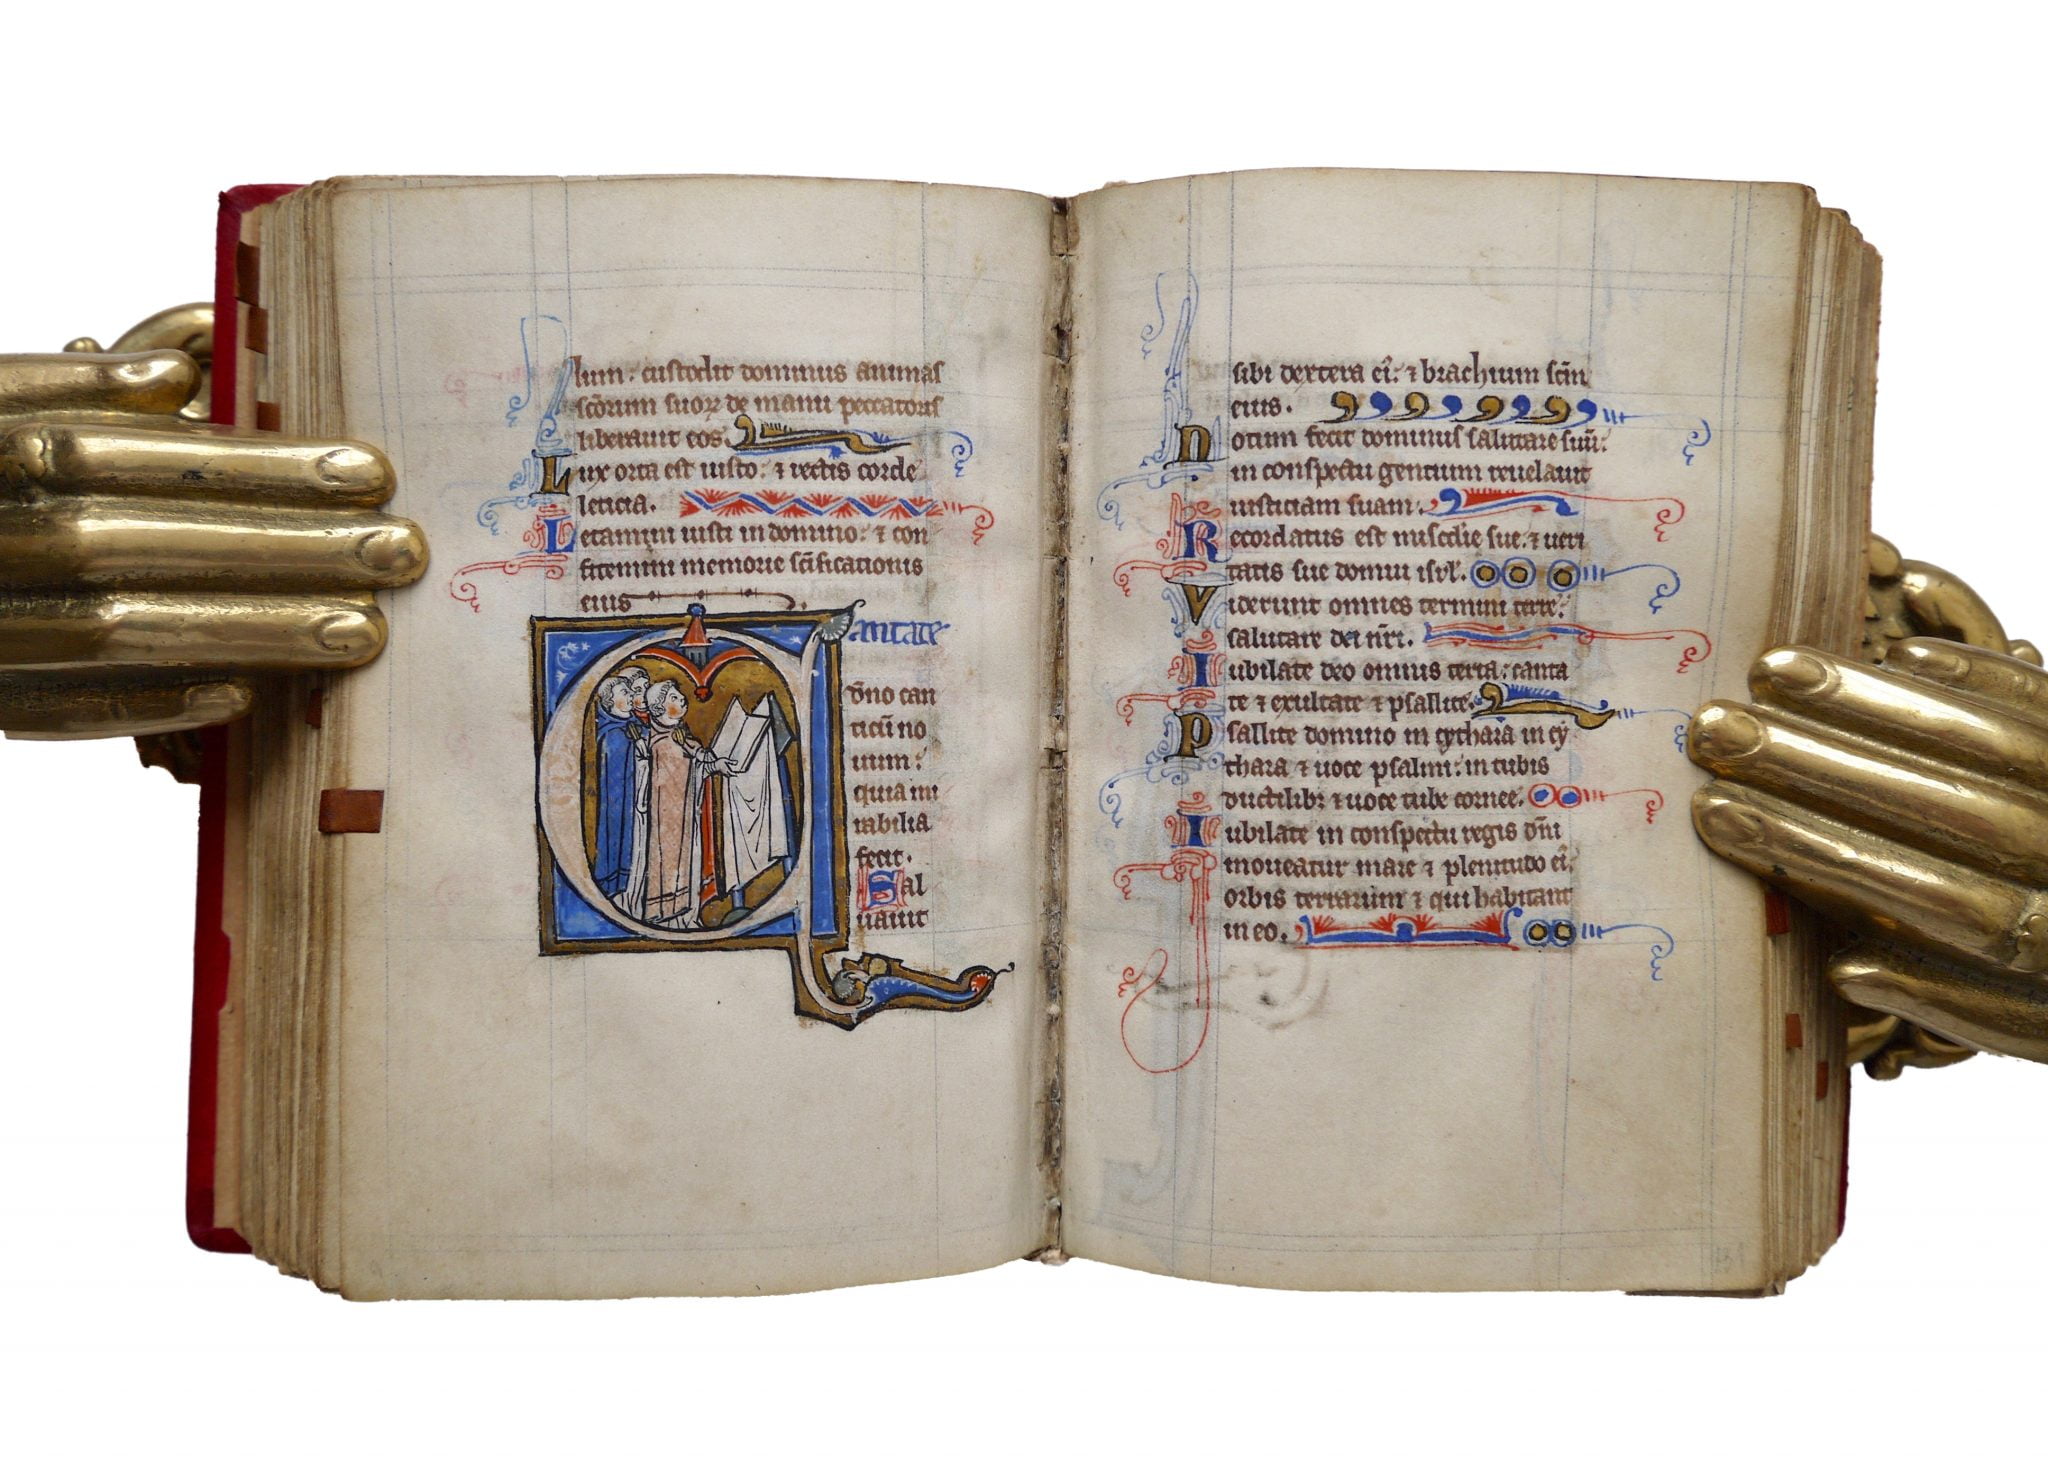 lum : custodit dominus animas
sc̃orum suoꝝ de manu peccatoris
liberauit eos.
Lux orta est iusto : ⁊ rectis corde
leticia.
Letamini iusti in domino : ⁊ con
fitemini memorie sc̃ificationis
eius
Cantate
dño can
ticũ no
uum :
quia mi
rabilia
fecit .
Sal
uauit
sibi dextera ei᷒ : ⁊ brachium sc̃m
eius .
Notum fecit dominus salutare suũ :
in conspectu gentium reuelauit
iusticiam suam .
Recordatus est misc̃die sue : ⁊ ueri
tatis sue domui isrl̃ .
Viderunt omnes termini terre :
salutare dei nr̃i .
Iubilate deo omnis terra : canta
te ⁊ exultate ⁊ psallite .
Psallite domino in cythara in cy
thara ⁊ uoce psalmi : in tubis
ductilib᷒ ⁊ uoce tube cornee .
Iubilate in conspectu regis dñi
moueatur mare ⁊ plenitudo ei᷒ :
orbis terrarum ⁊ qui habitant
in eo .